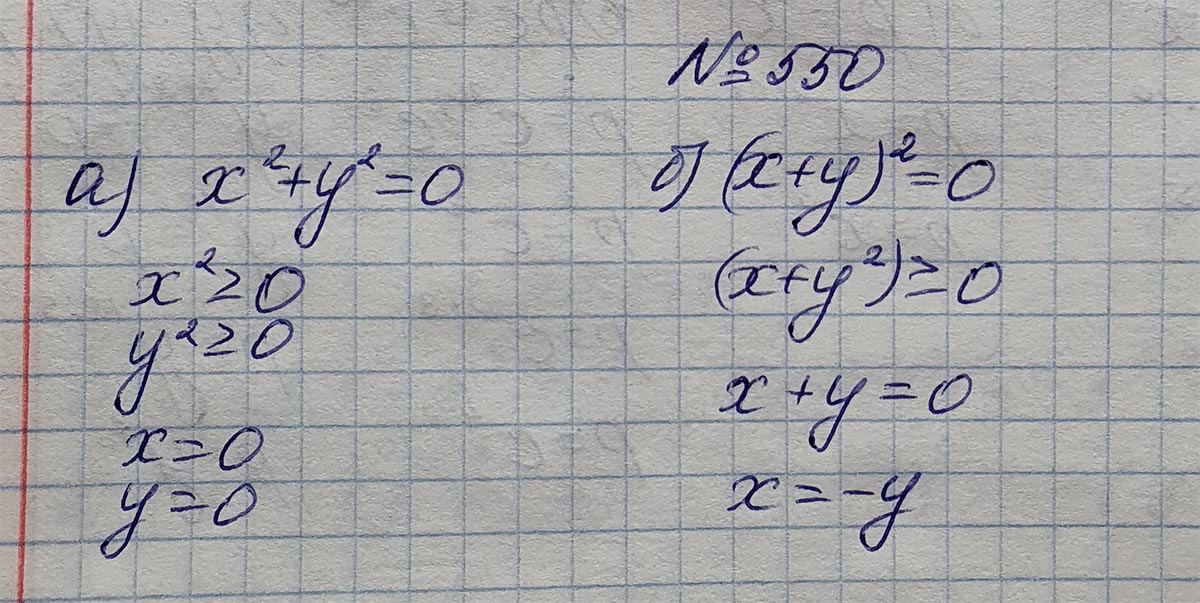 №550
а) x²+y²=0
x²≥0
y²≥0
x=0
y=0
б) (x+y)²=0
(x+y²)≥0
x+y=0
x=-y